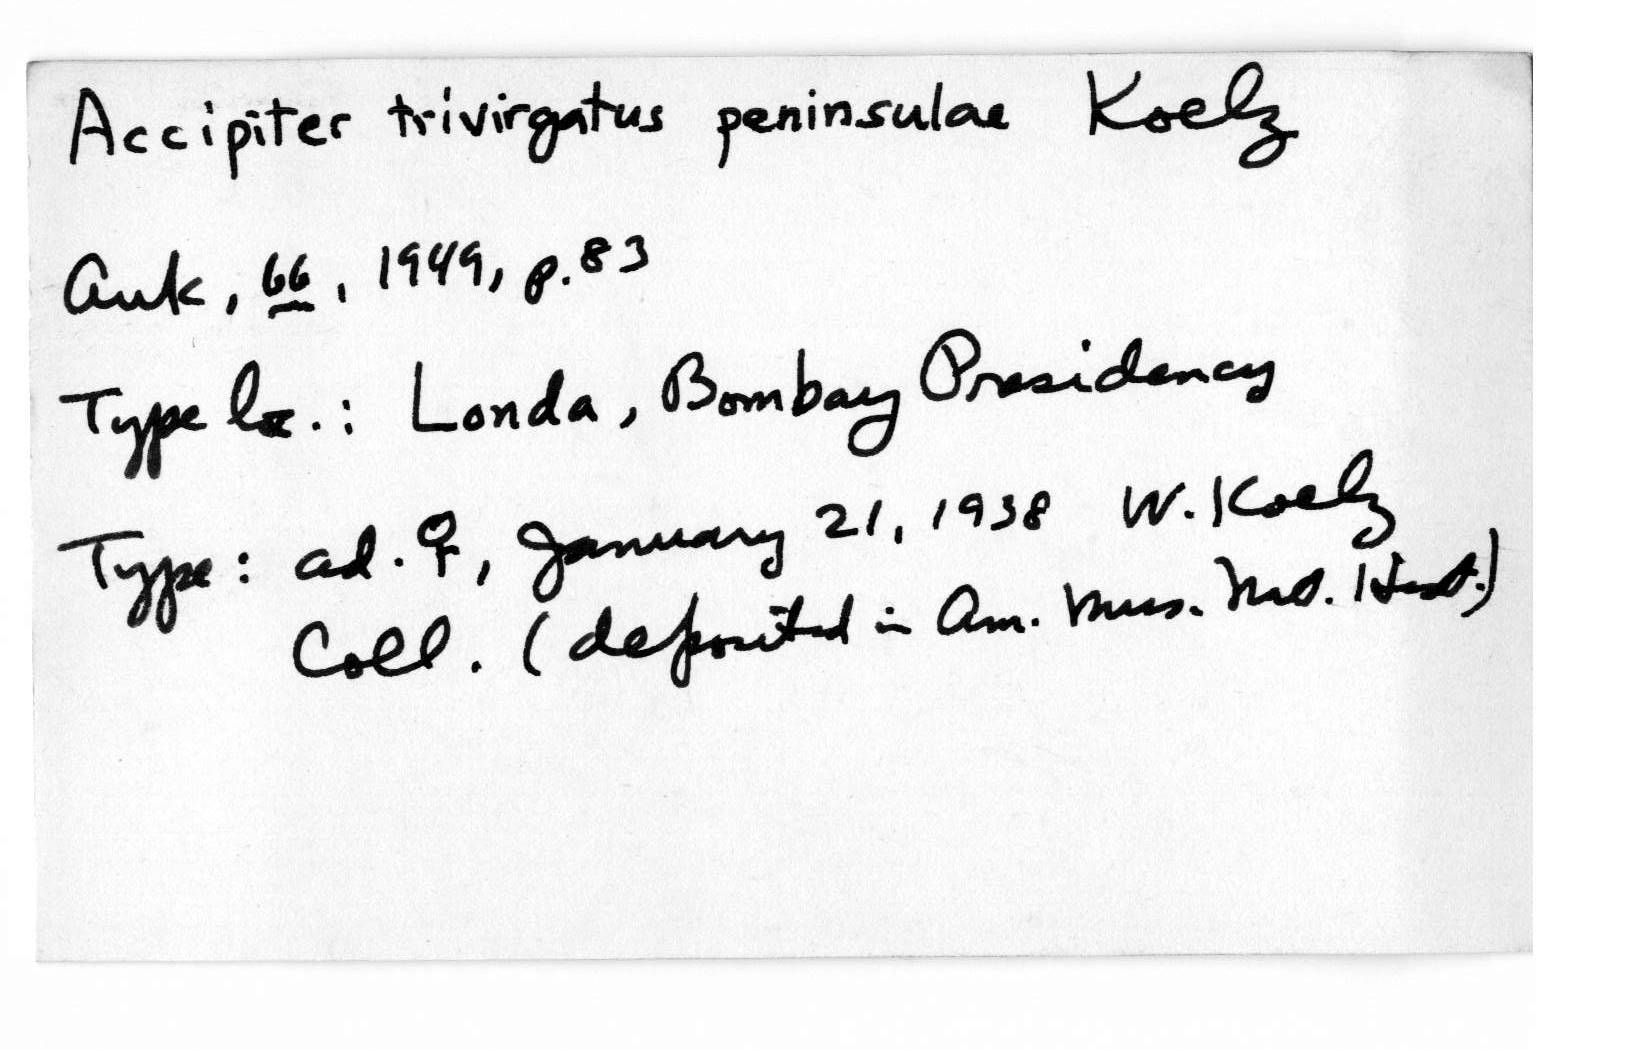 Accipiter trivirgatus peninsulae Koelz
Auk, 66, 1949, p. 83
Type loc.: Londa, Bombay Presidency
Type: ad. ♀, January 21, 1938 W. Koelz
Coll. (deposited in Am. Mus. Nat. Hist.)